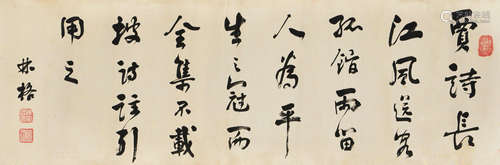 賈詩長
江風送客
孤館雨留
人為平
生之冠而
全集不載
坡詩註引
用之